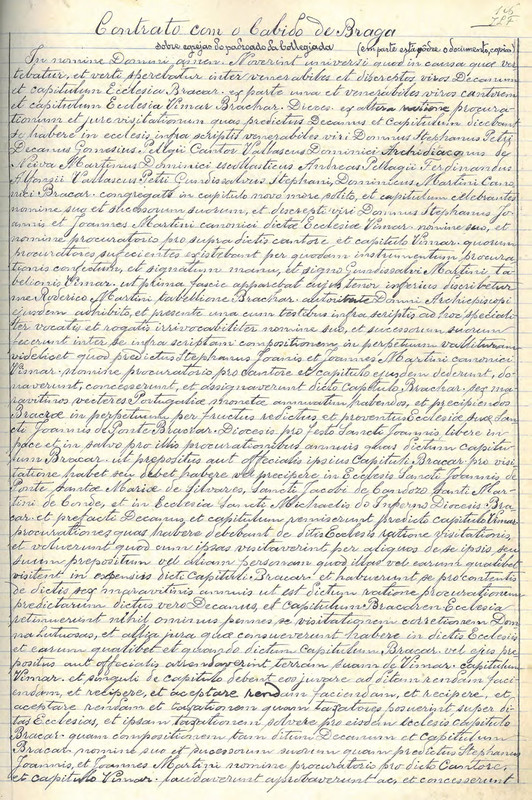 Contrato com o Cabido de Braga
sobre egrejas do padroado da Collegiada (em parte está pôdre o documento, copia)
In nomine Domini amen. Noverint universi quod in causa quæ ver
tebatur, et verti sperebatur inter venerabiles et discretos viros Decanum
et capitulum Ecclesiæ Bracar. ex parte una et venerabiles viros cantorem
et capitulum Ecclesiæ Vimar. Brachar. Dioces. ex altera ratione procura
tionum et jure visitationum quas predictus Decanus et Capitulum dicebant
se habere in ecclesis infra scriptis venerabiles viri Domnus Stephanus Petri
Decanus Gomesius Pellagii Cantor Vallascus Dominici Archidiacqnus de
Neiva Martinus Dominici escollasticus Andreas Pellagii Ferdinandus
Alfonsii Vallascus Petri Gundissalvus Stephani, Dominicus Martini Cano
nici Bracar. congregati in capitulo novo more solito, et capitulum celebrantes
nomine suo et sucessorum suorum, et discreti viri Domnus Stephanus Jo
annis et Joannes Martini canonici dictæ Ecclesiæ Vimar. nomine suo, et
nomine procuratorio pro supra dictis cantore et capitulo Vimar. quorum
procuratores sufficientes existebant per quodam instrumentum procura
tionis confectum, et signatum manu, et signo Gundissalvi Martini, ta
belionis Vimar. ut prima fascie apparebat cujus tenor inferius discribetur
me Roderico Martini tabellione Brachar. autoritate Domni Archiepiscopi
ejusdem adhibito, et presente una cum testibus infra scriptis ad hoc speciali
ter vocatis et rogatis irrivocabiliter nomine suo, et sucessorum suorum
fecerunt inter se infra scriptam compositionem in perpetuum valituram
videlicet quod predictus Stephanus Joanis et Joannes Martini canonici
Vimar. nomine procuratorio pro cantore et capitulo ejusdem dederunt, do
naverunt, concesserunt, et assignaverunt dicto Capitulo, Brachar. sex ma
ravitinos vecteres Portugaliæ monetæ annuatim habendos, et precipiendos
Bracræ in perpetuum per fructus reditus et proventus Ecclesiæ suæ San
cti Joannis de Ponte Bracar. Diocesis pro festo Sancti Joannis libere in
pace et in salvo pro illis procurationibus annuis quas dictum Capitu
lum Bracar. ut prepositus aut officialis ipsius Capituli Bracar. pro visi
tatione habet seu debet habere vel precipere in Ecclesis Sancti Joannis, de
Ponte Santæ Mariæ de Silvares, Sancti Jacobi de Candozo Santi Mar
tini de Conde, et in Ecclesia Sancti Michaelis do Inferno Diocesis Bra
car. et prefacte Decanus, et capitulum remiserunt predicto capitulo Vimar.
procurationes quas habere debebant de ditis Ecclesis ratione visitationis,
et voluerunt quod cum ipsas visitaverint per aliquos de se ipsis seu
suum prepositum vel atiam personam quod illas vel earum qualibet
visitent in expensis dicti Capituli Bracar. et habuerunt se pro contentis
de dictis sex maravitinis annuis ut est dictum ratione procurationum
predictarum dictus vero Decanus, et Capitulum Bracaren Ecclesia
retinuerunt nihil ominus penes se visitationem corretionem Dom
na Lutuosas, et allia jura quæ consueverunt habere in dictis Ecclesiis
et earum qualibet et quando dictum Capitulum, Bracar. vel ejus pre
positus aut offecialis arrendaverint terram suam de Vimar. capitulum
Vimar. et singuli de capitulo debent eos juvare ad ditam rendam faci
endam, et recipere, et aceptare rendam faciendam, et recipere, et
aceptare rendam et taxationem quam taxatores posuerint super di
tas Ecclesias, et ipsam taxationem solvere pro eisdem ecclesis capitulo
Bracar. quam compositionem tam ditum Decanum et Capitulum
Bracar. nomine suo et sucessorum suorum quam predictus Stephanus
Joannis, et Joannes Martini nomine procuratorio pro dicto Cantore,
et capitulo Vimar. laudaverunt aprobaverunt ac, et concesserunt